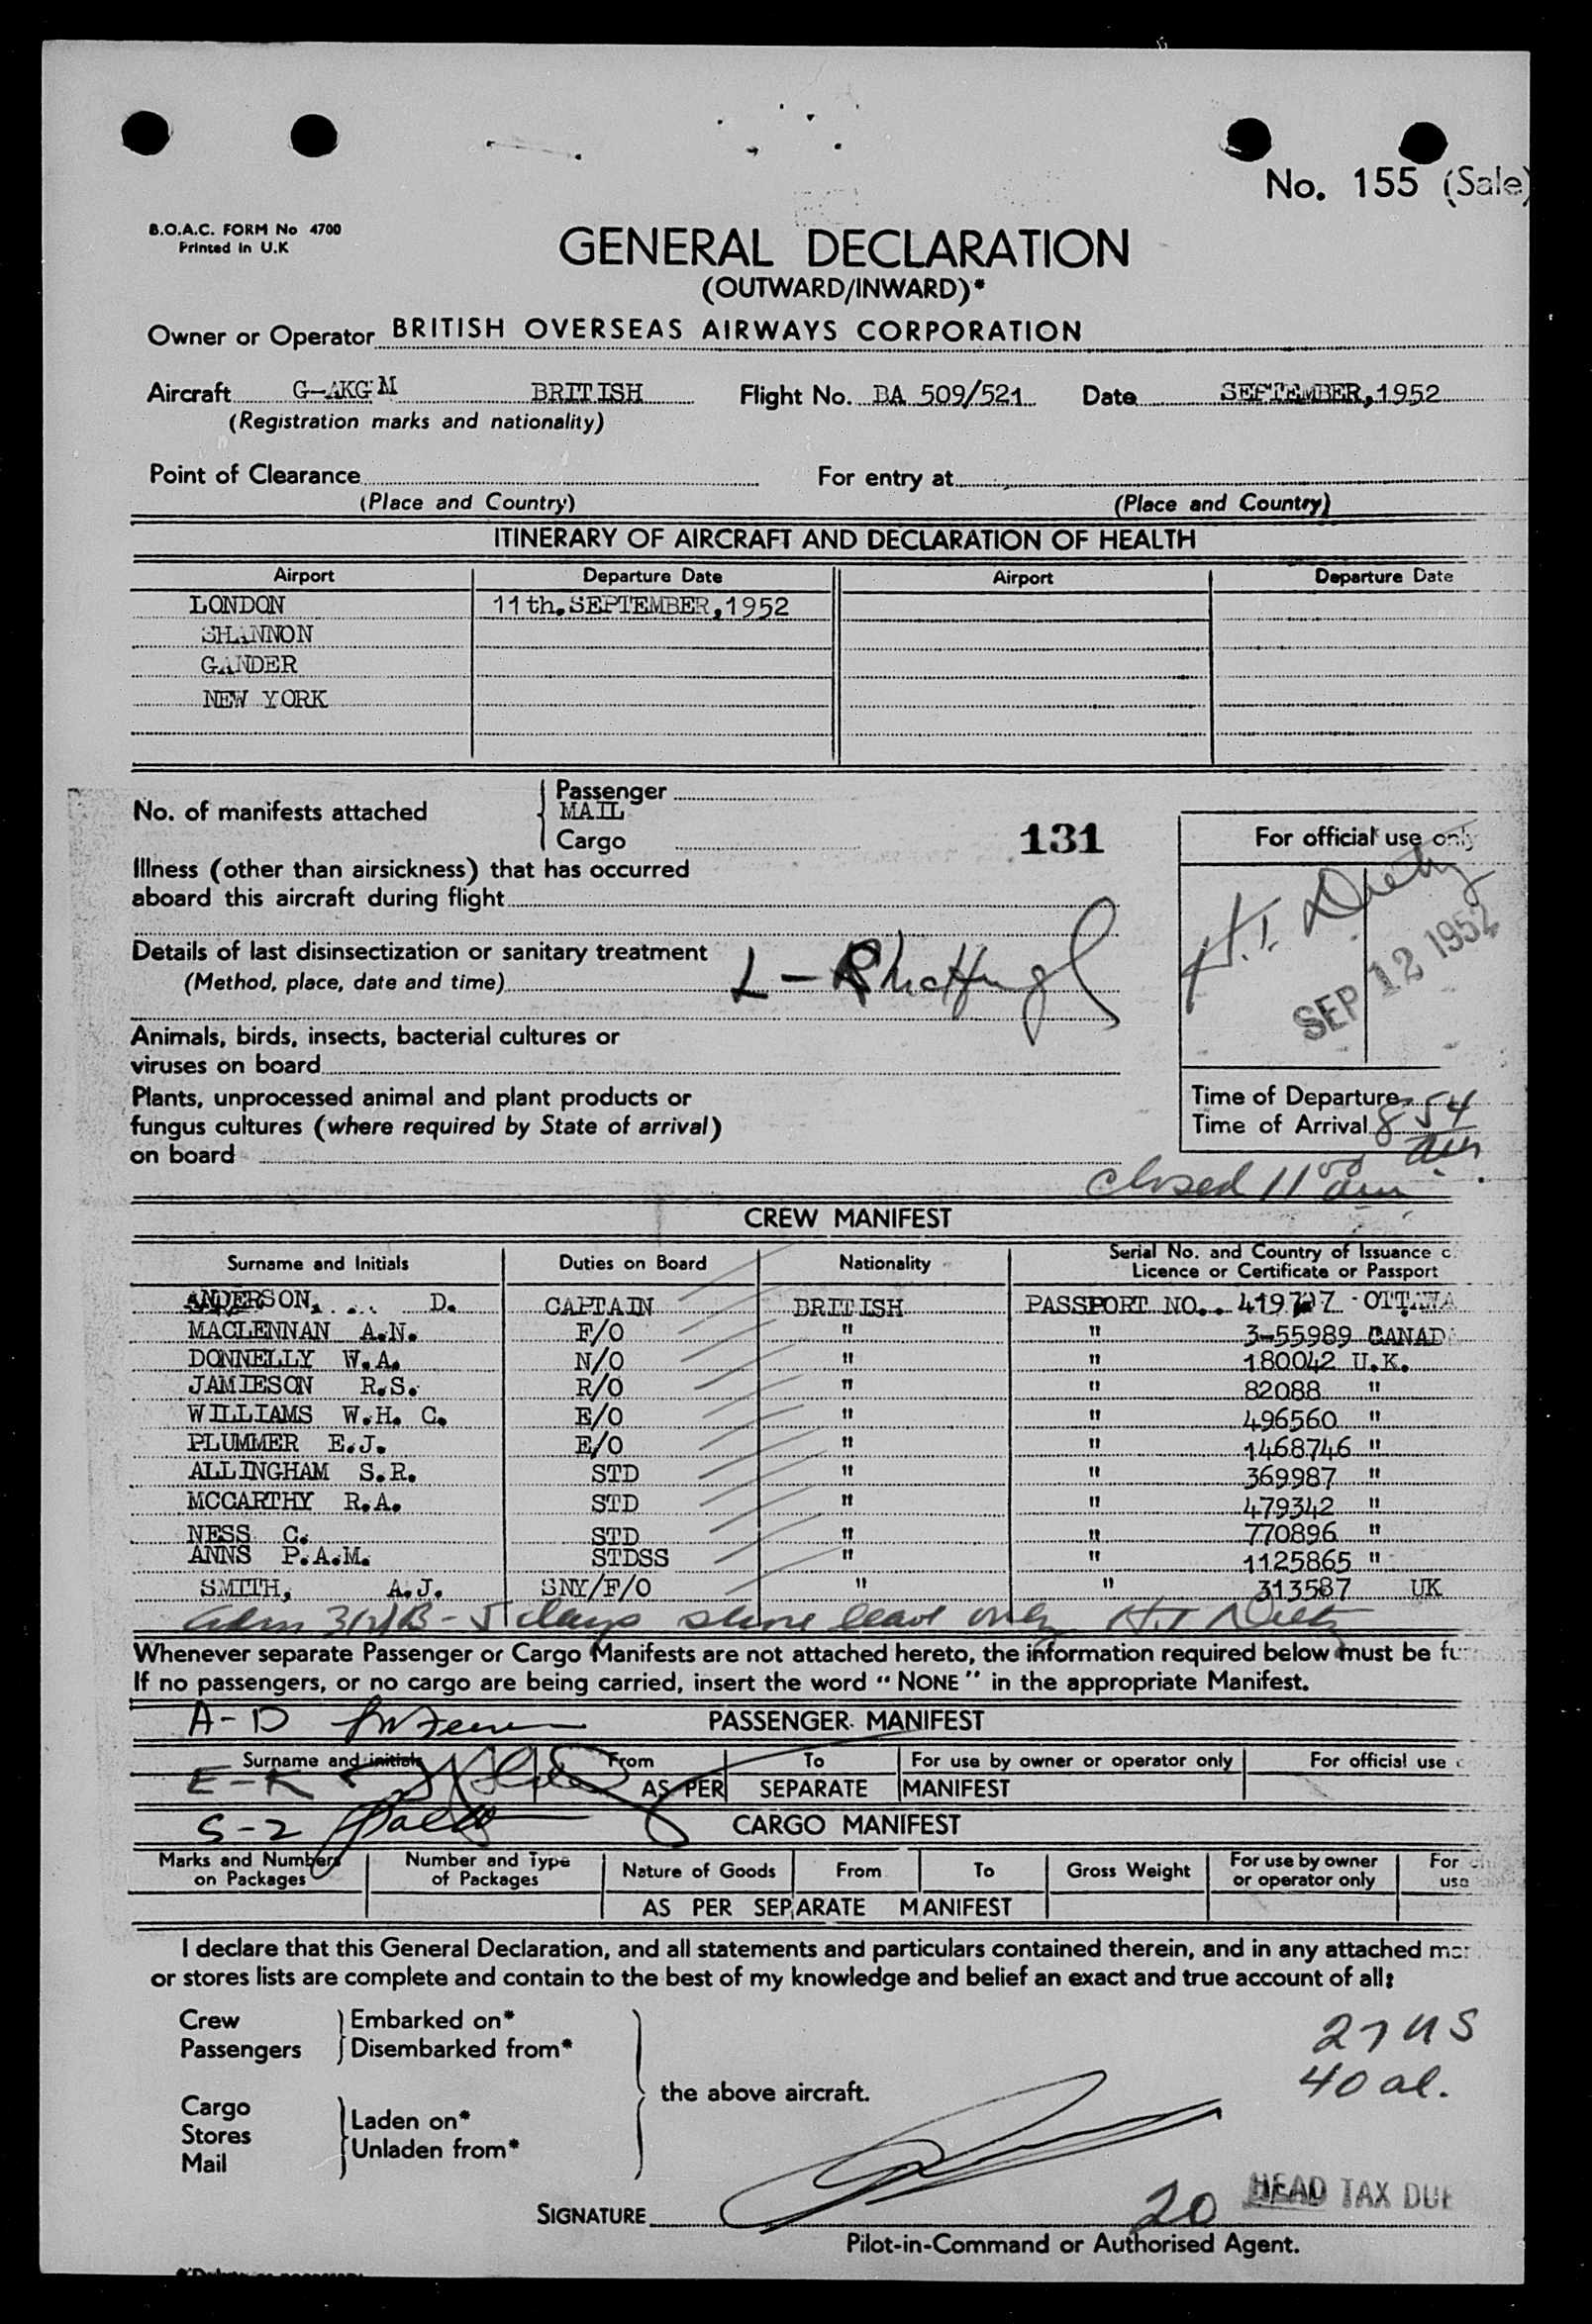 No. 155 (Sale)
B.O.A.C. FORM No 4700
Printed in U.K
GENERAL DECLARATION
(OUTWARD/INWARD)*
Owner or Operator BRITISH OVERSEAS AIRWAYS CORPORATION
Aircraft G-AKGM BRITISH Flight No. BA 509/521 Date SEPTEMBER, 1952
(Registration marks and nationality)
Point of Clearance For entry at
(Place and Country) (Place and Country)
ITINERARY OF AIRCRAFT AND DECLARATION OF HEALTH
Airport Departure Date Airport Departure Date
LONDON 11th. SEPTEMBER, 1952
SHANNON
GANDER
NEW YORK
No. of manifests attached
Passenger
MAIL
Cargo
131
For official use only
Illness (other than airsickness) that has occurred
aboard this aircraft during flight
H.T. Dietz
SEP 12 1952
Details of last disinsectization or sanitary treatment
(Method, place, date and time)
L -
Animals, birds, insects, bacterial cultures or
viruses on board
Plants, unprocessed animal and plant products or
fungus cultures (where required by State of arrival)
on board
Time of Departure
Time of Arrival 8 54
am
closed 11 00 am
CREW MANIFEST
Surname and Initials Duties on Board Nationality Serial No. and Country of Issuance
Licence or Certificate or Passport
ANDERSON, D. CAPTAIN BRITISH PASSPORT NO. OTTAWA
MACLENNAN A.N. F/O " " 3-55989 CANAD
DONNELLY W.A. N/O " " 180042 U.K.
JAMIESON R.S. R/O " " 82088 "
WILLIAMS W.H. C. E/O " " 496560 "
PLUMMER E.J. E/O " " 1468746 "
ALLINGHAM S.R. STD " " 369987 "
MCCARTHY R.A. STD " " 479342 "
NESS C. STD " " 770896 "
ANNS P.A.M. STDSS " " 1125865 "
SMITH, A.J. SNY/F/O " " 313587 UK
5 days shore leave only H.T. Dietz
Whenever separate Passenger or Cargo Manifests are not attached hereto, the information required below must be
If no passengers, or no cargo are being carried, insert the word "NONE" in the appropriate Manifest.
A-D
PASSENGER MANIFEST
Surname and initials From To For use by owner or operator only For official use
E-K
AS PER SEPARATE MANIFEST
S-Z
CARGO MANIFEST
Marks and Numbers on Packages Number and Type of Packages Nature of Goods From To Gross Weight For use by owner or operator only For
AS PER SEPARATE MANIFEST
I declare that this General Declaration, and all statements and particulars contained therein, and in any attached
or stores lists are complete and contain to the best of my knowledge and belief an exact and true account of all:
Crew Embarked on*
Passengers Disembarked from*
27 US
40 al.
the above aircraft.
Cargo
Stores
Mail
Laden on*
Unladen from*
SIGNATURE
20 HEAD TAX DUE
Pilot-in-Command or Authorised Agent.